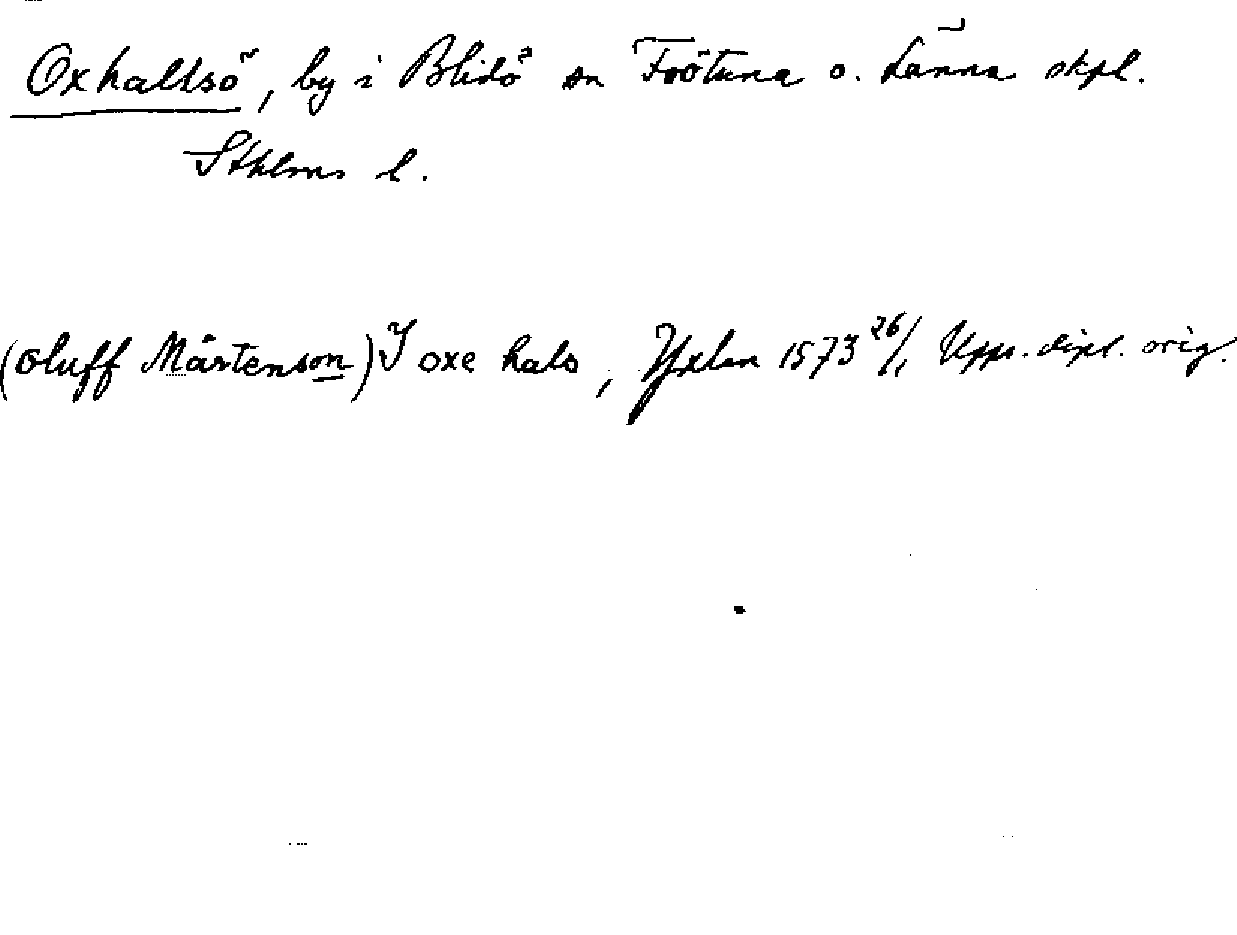 Oxhalsö, by i Blidö sn Frötuna o. Länna skpl.
Sthlms l.
(oluff Mårtenson) J oxe hals, Yxlan 1573 26/1 Upps. dipl. orig.